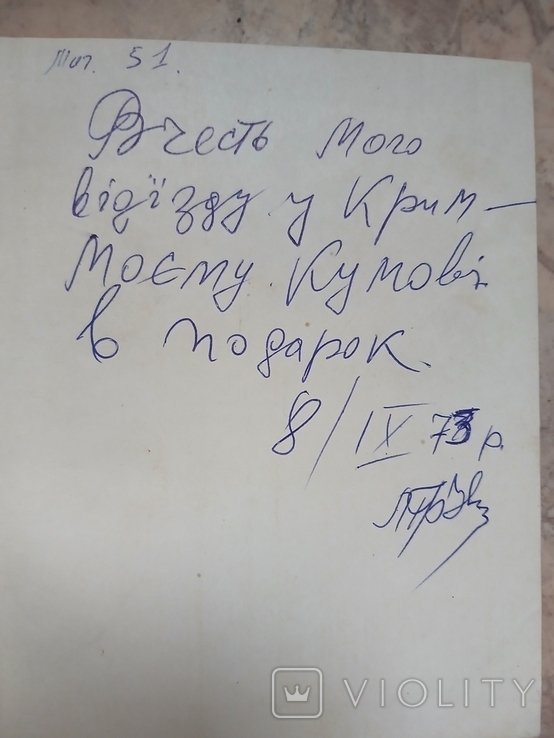 Маг. 51.
В честь мого
відїзду у Крим –
моєму Кумові
в подарок.
8/IX 73 р.
VIOLITY